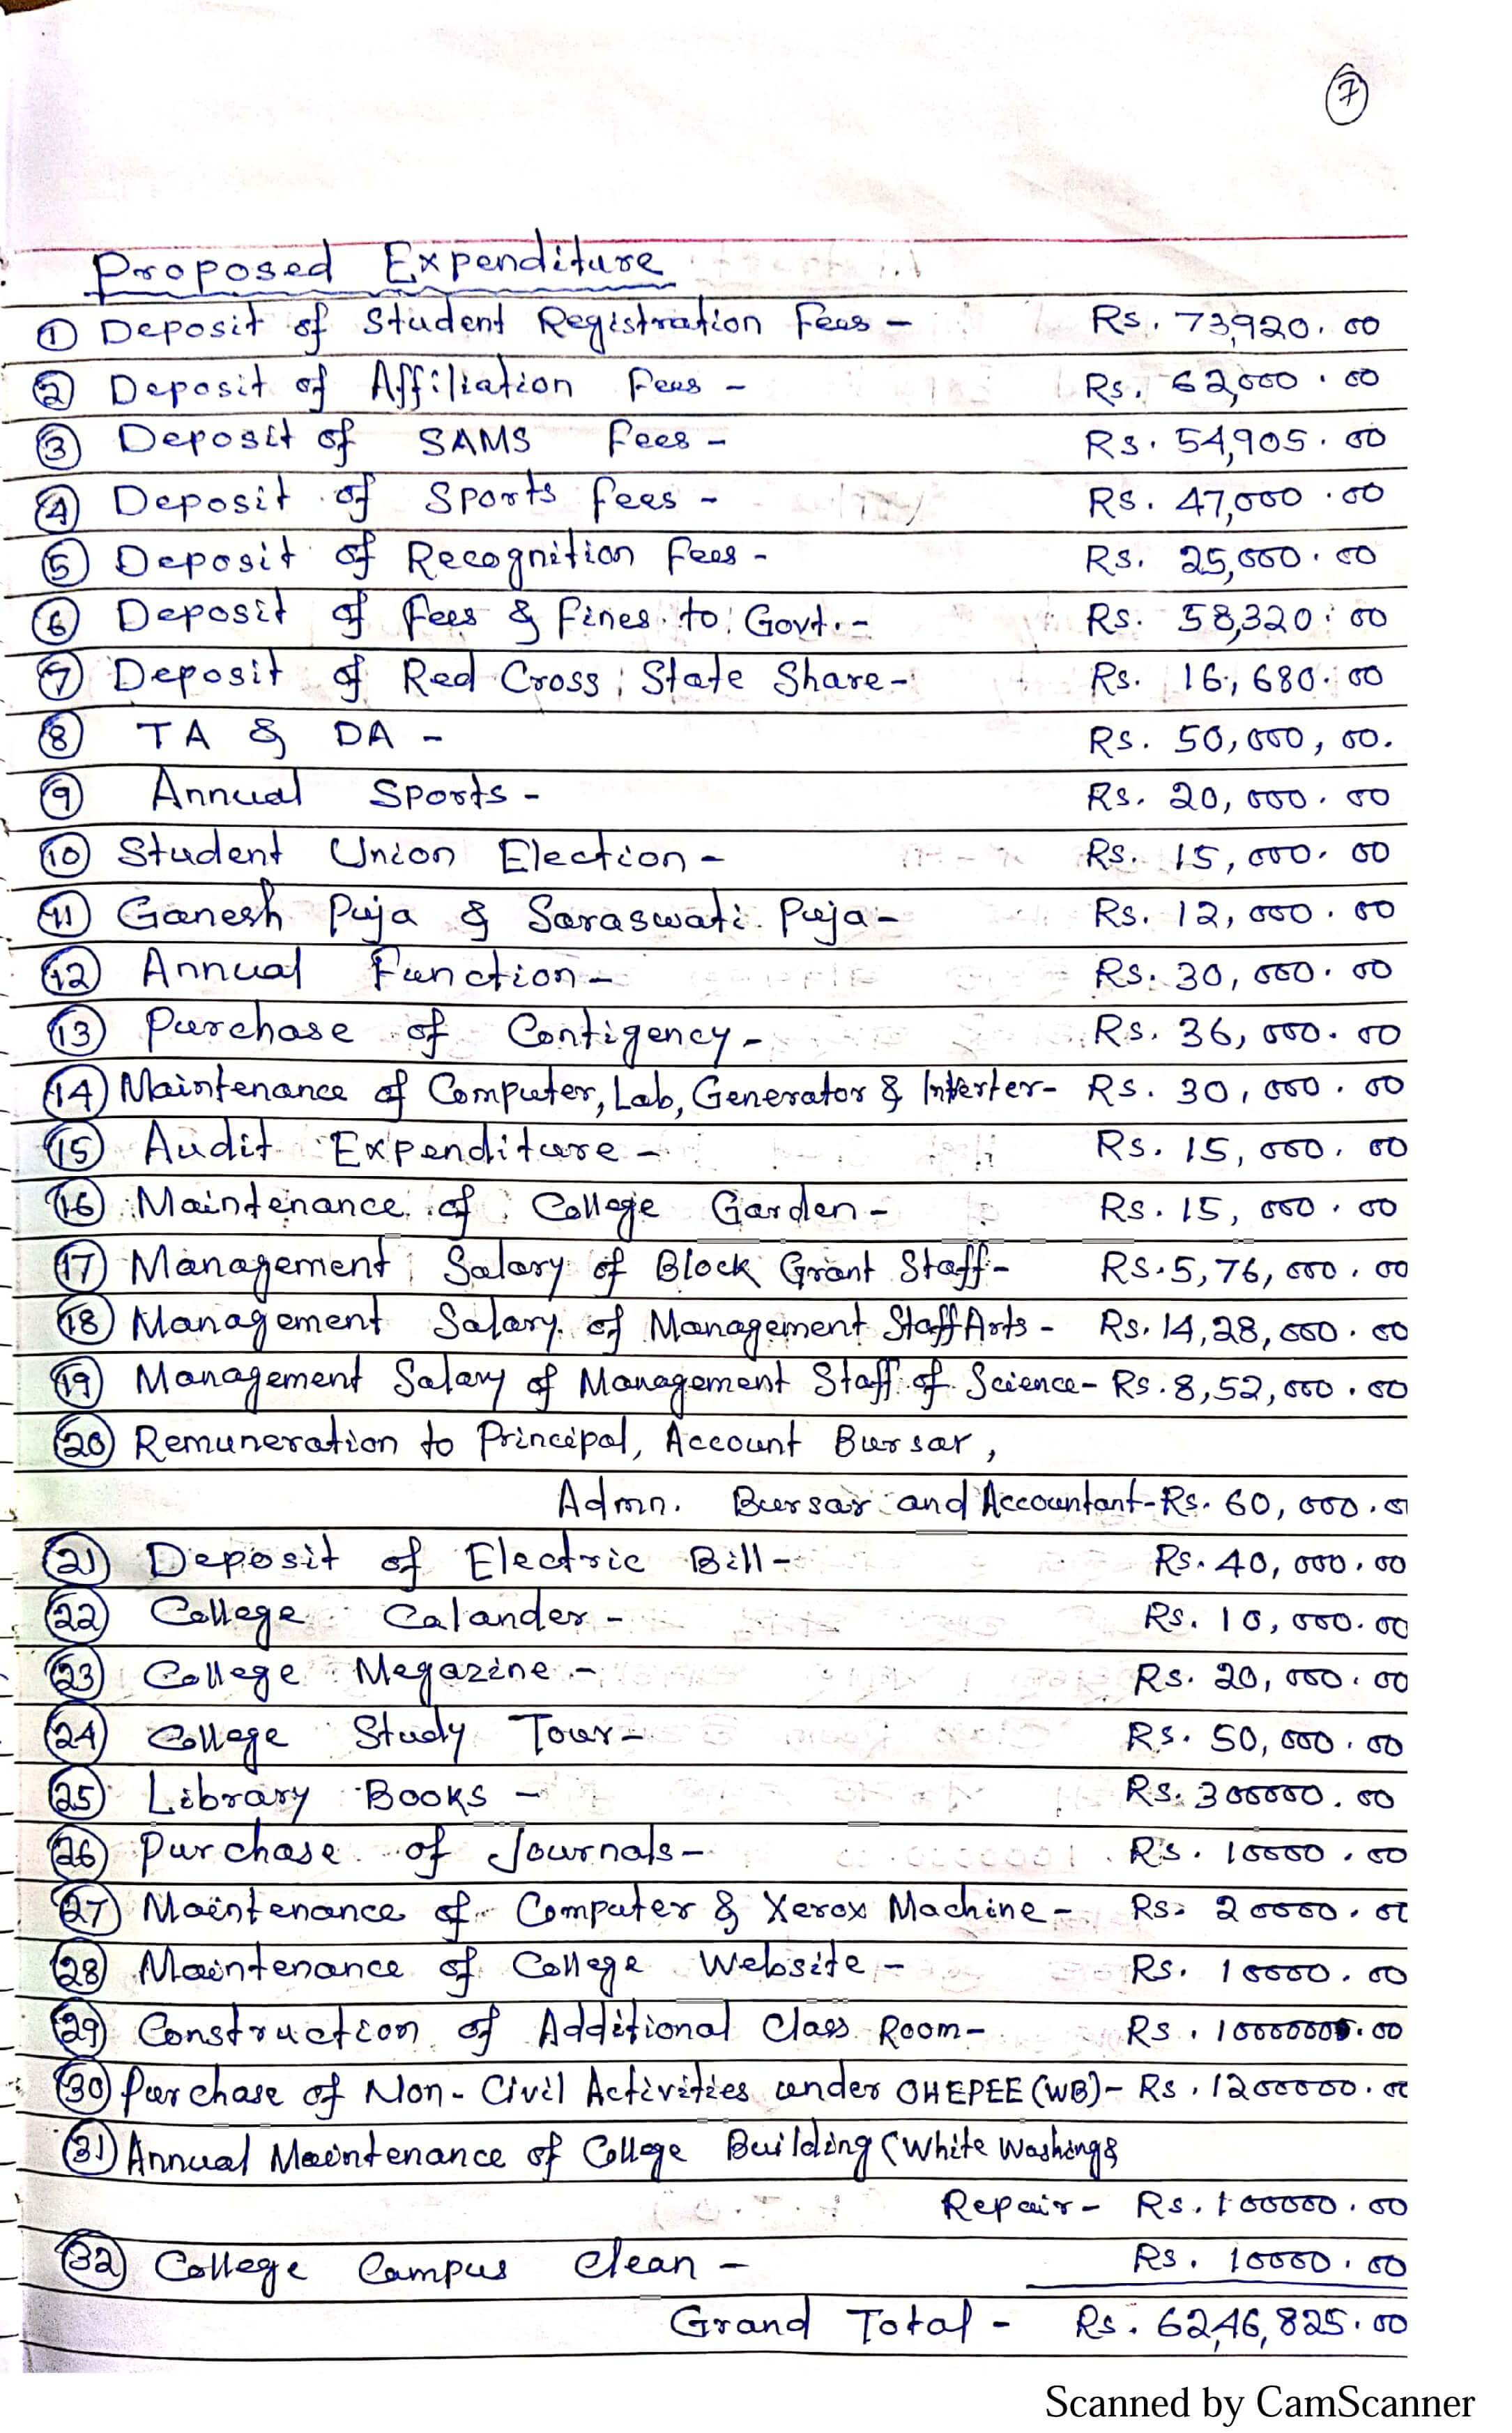 7
Proposed Expenditure
1 Deposit of Student Registration Fees - Rs. 73,920.00
2 Deposit of Affiliation Fees - Rs. 62,000.00
3 Deposit of SAMS Fees - Rs. 54,905.00
4 Deposit of Sports fees - Rs. 47,000.00
5 Deposit of Recognition Fees - Rs. 25,000.00
6 Deposit of Fees & Fines to Govt. - Rs. 58,320.00
7 Deposit of Red Cross State Share - Rs. 16,680.00
8 TA & DA - Rs. 50,000,00.
9 Annual Sports - Rs. 20,000.00
10 Student Union Election - Rs. 15,000.00
11 Ganesh Puja & Saraswati Puja - Rs. 12,000.00
12 Annual Function - Rs. 30,000.00
13 Purchase of Contigency - Rs. 36,000.00
14 Maintenance of Computer, Lab, Generator & - Rs. 30,000.00
15 Audit Expenditure - Rs. 15,000.00
16 Maintenance of College Garden - Rs. 15,000.00
17 Management Salary of Block Grant Staff - Rs. 5,76,000.00
18 Management Salary of Management Staff Arts - Rs. 14,28,000.00
19 Management Salary of Management Staff of Science - Rs. 8,52,000.00
20 Remuneration to Principal, Account Bursar,
Admn. Bursar and Accountant - Rs. 60,000.0
21 Deposit of Electric Bill - Rs. 40,000.00
22 College Calander - Rs. 10,000.00
23 College Megazine - Rs. 20,000.00
24 College Study Tour - Rs. 50,000.00
25 Library Books - Rs. 300000.00
26 Purchase of Journals - Rs. 10000.00
27 Maintenance of Computer & Xerox Machine - Rs. 20000.00
28 Maintenance of College Website - Rs. 10000.00
29 Construction of Additional Class Room - Rs. 1000000.00
30 Purchase of Non-Civil Activities under OHEPEE (WB) - Rs. 1200000.00
31 Annual Maintenance of College Building (White Washing &
Repair - Rs. 100000.00
32 College Campus Clean - Rs. 10000.00
Grand Total - Rs. 62,46,825.00
Scanned by CamScanner